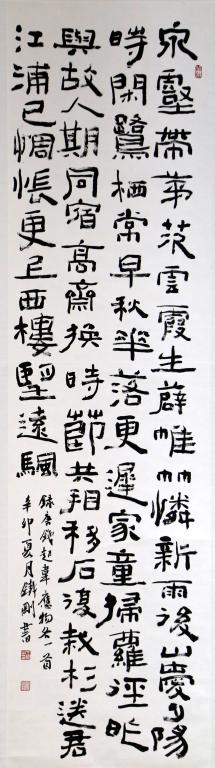 泉壑帶茅茨雲霞生薜帷竹憐新雨後山愛夕陽
時閑鷺栖常早秋華落更遲家童掃蘿徑昨
與故人期同宿高齋換時節共相移石復栽杉送君
江浦已惆悵更上西樓望遠颿
錄唐錢起韋應物各一首
辛卯夏月鐵剛書